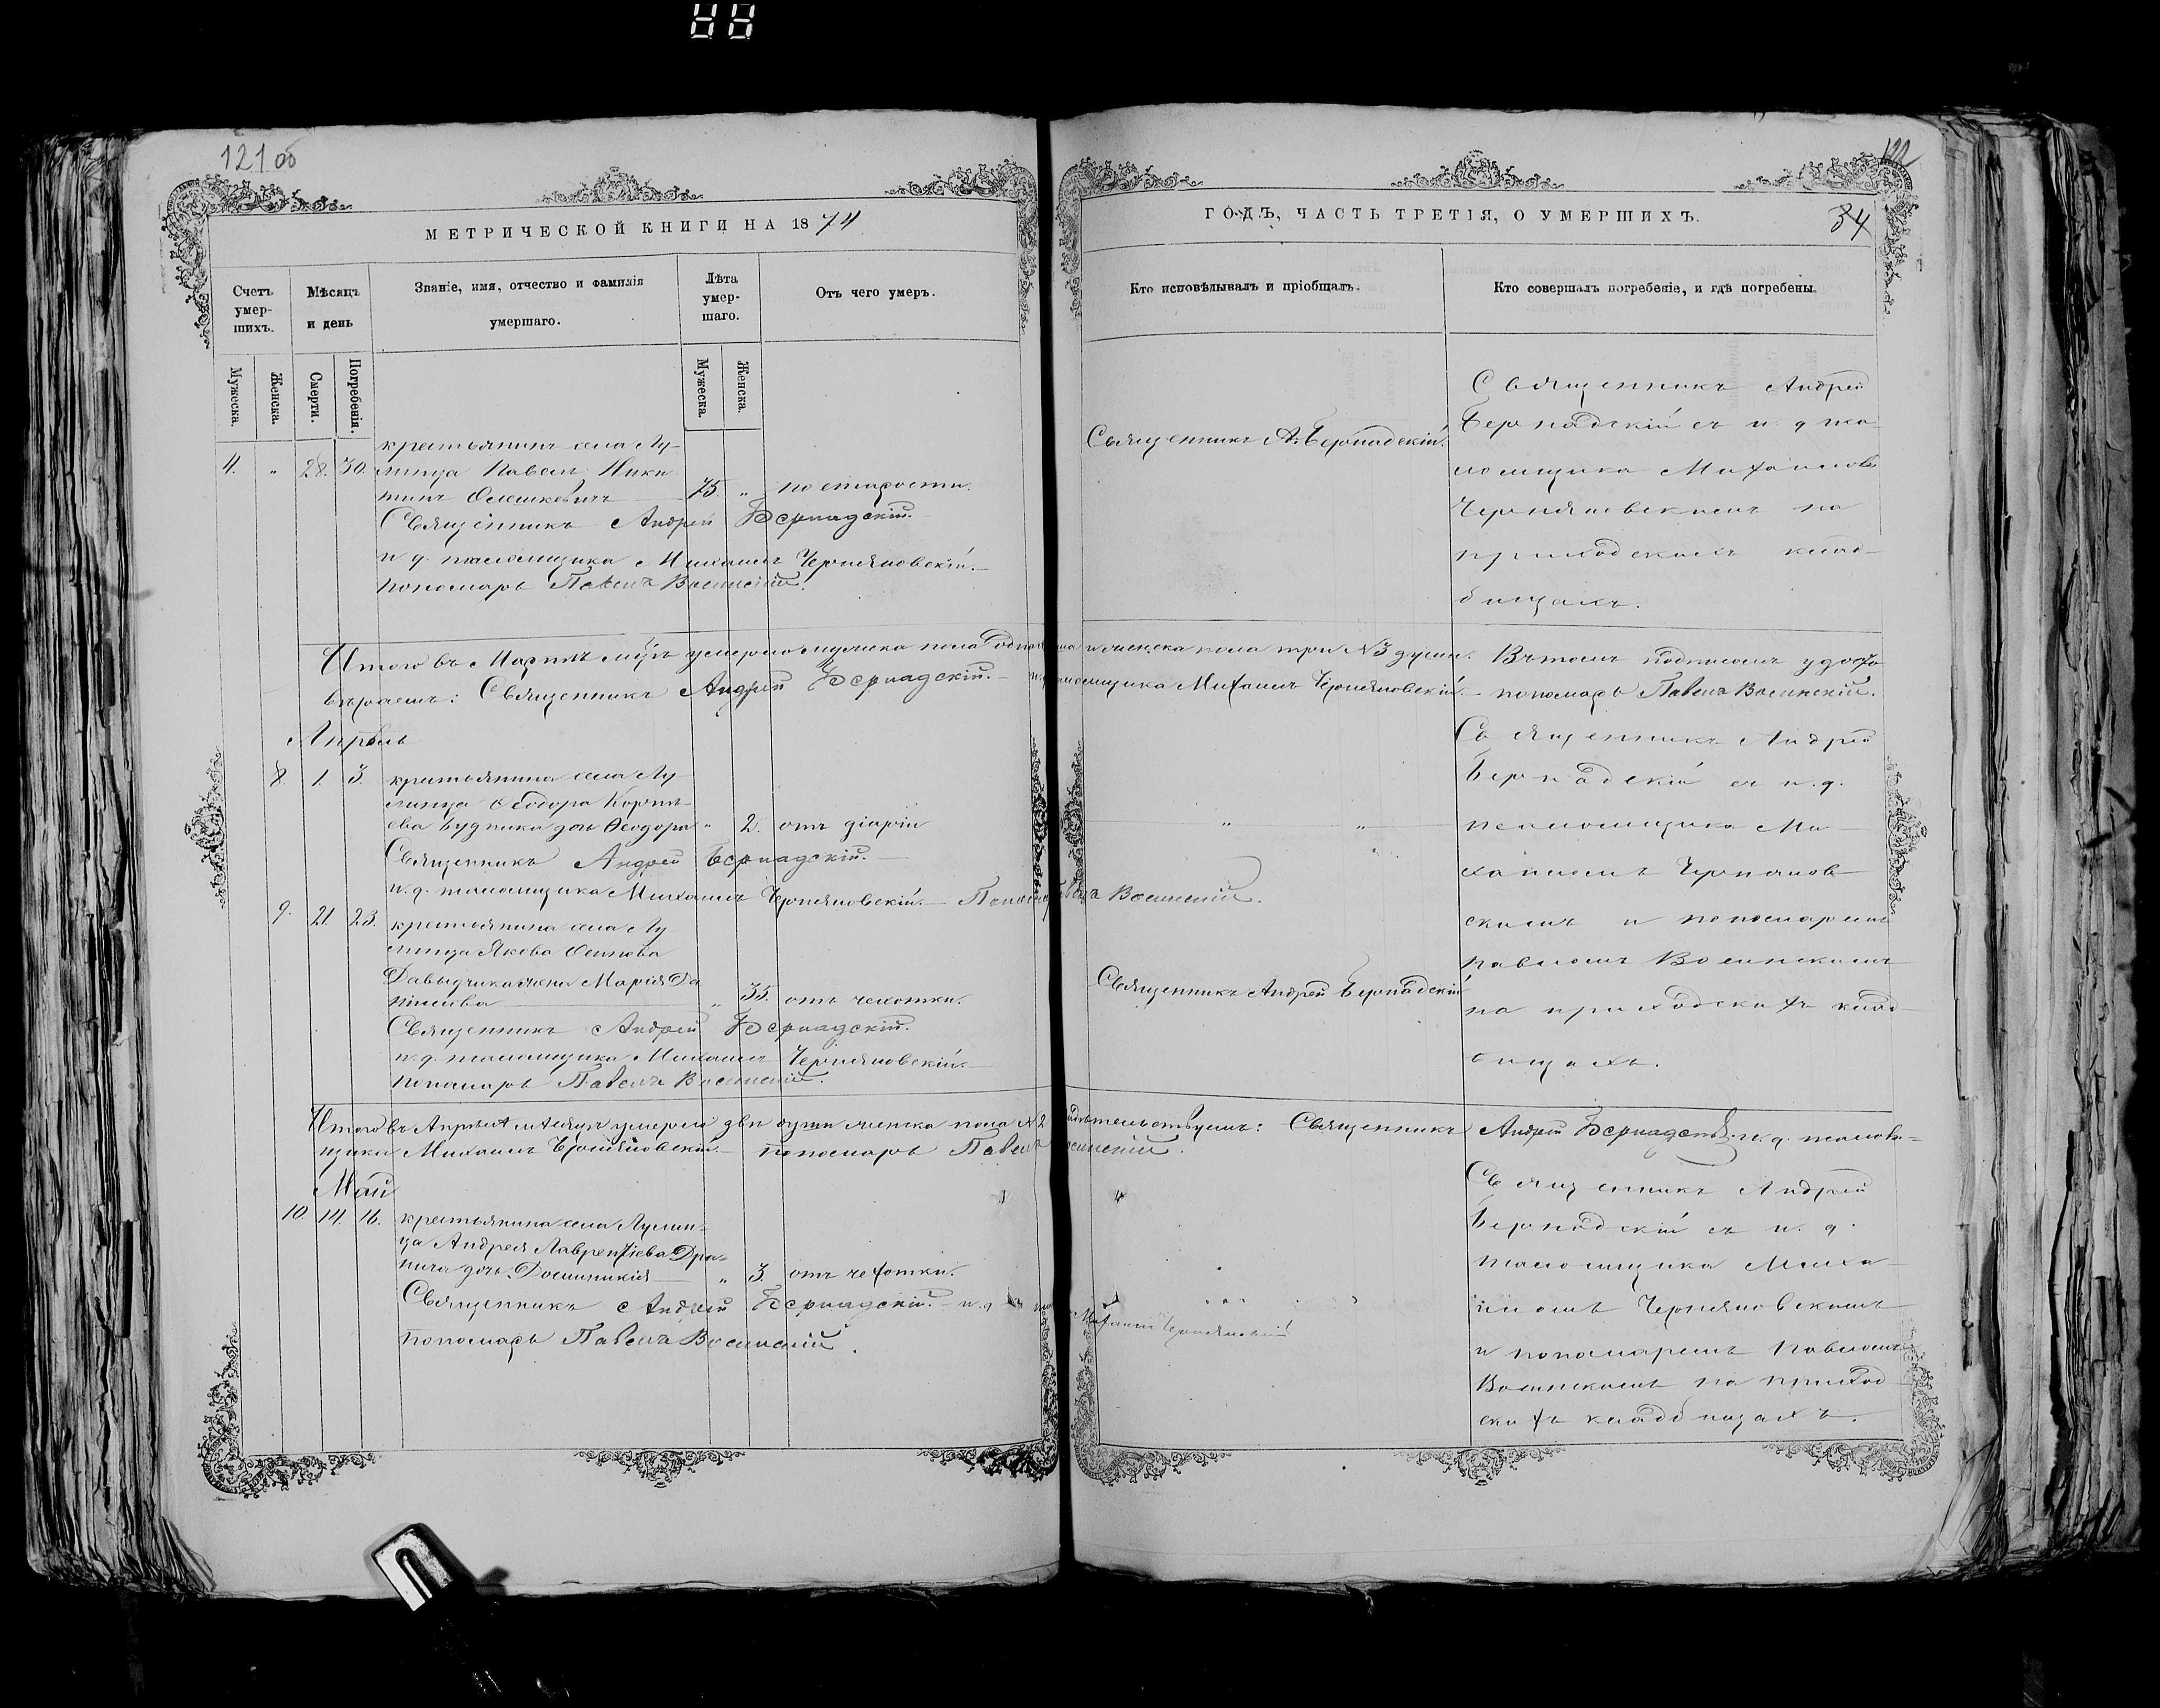 121 об
122
МЕТРИЧЕСКОЙ КНИГИ НА 1874
ГОДЪ, ЧАСТЬ ТРЕТІЯ, О УМЕРШИХЪ.
34
Счетъ умер-шихъ.
Мѣсяцъ и день
Званіе, имя, отчество и фамилія умершаго.
Лѣта умер-шаго.
Отъ чего умеръ.
Кто исповѣдывалъ и пріобщалъ.
Кто совершалъ погребеніе, и гдѣ погребены.
Мужеска.
Женска.
Смерти.
Погребенія.
Мужеска.
Женска.
крестьянинъ села Лу-
4. " 28. 30. нинца Павелъ Ники
тинъ Олешкевичъ 75. " по старости.
Священникъ Андрей Бернадскій.
и д. псаломщика Михаилъ Черняновскій.
пономарь Павелъ Волынскій.
Священникъ А. Бернадскій.
Священникъ Андрей
Бернадскій съ и. д. пса-
ломщика Михаиломъ
Черняновскимъ на
приходскихъ клад-
бищахъ.
Итого въ Мартѣ м-цѣ умерло мужеска пола одна женска пола три №3 души. Въ томъ подписомъ удосто
вѣряемъ: Священникъ Андрей Бернадскій. псаломщика Михаилъ Черняновскій. пономарь Павелъ Волынскій.
Апрѣль
8. 1. 3. крестьянина села Лу-
нинца Ѳеодора Корнѣ-
ева Будника дочь Ѳеодора " 2. отъ діаріи
Священникъ Андрей Бернадскій.
и. д. псаломщика Михаилъ Черняновскій. Пономарь Павелъ Волынскій.
Священникъ Андрей
Бернадскій съ и. д.
псаломщика Ми-
хаиломъ Чернянов-
скимъ и пономаремъ
Павломъ Волынскимъ
на приходскихъ клад-
бищахъ.
9. 21. 23. крестьянина села Лу
нинца Якова Осипова
Давыдчика жена Марія Да
нилова " 35. отъ чехотки.
Священникъ Андрей Бернадскій.
и. д. псаломщика Михаилъ Черняновскій.
пономарь Павелъ Волынскій.
Священникъ Андрей Бернадскій
Итого въ Апрѣлѣ мѣсяцѣ умерло двѣ души женска пола №2 свидѣтельствуемъ: Священникъ Андрей Бернадскій. и. д. псалом-
щика Михаилъ Черняновскій. пономарь Павелъ Волынскій.
Май
10. 14. 16. крестьянина села Лунин-
ца Андрея Лаврентіева Дра-
нича дочь Домникія " 3. отъ чехотки.
Священникъ Андрей Бернадскій. и. д.
Михаилъ Черняновскій
пономарь Павелъ Волынскій.
Священникъ Андрей
Бернадскій съ и. д.
псаломщика Миха-
иломъ Черняновскимъ
и пономаремъ Павломъ
Волынскимъ на приход
скихъ кладбищахъ.